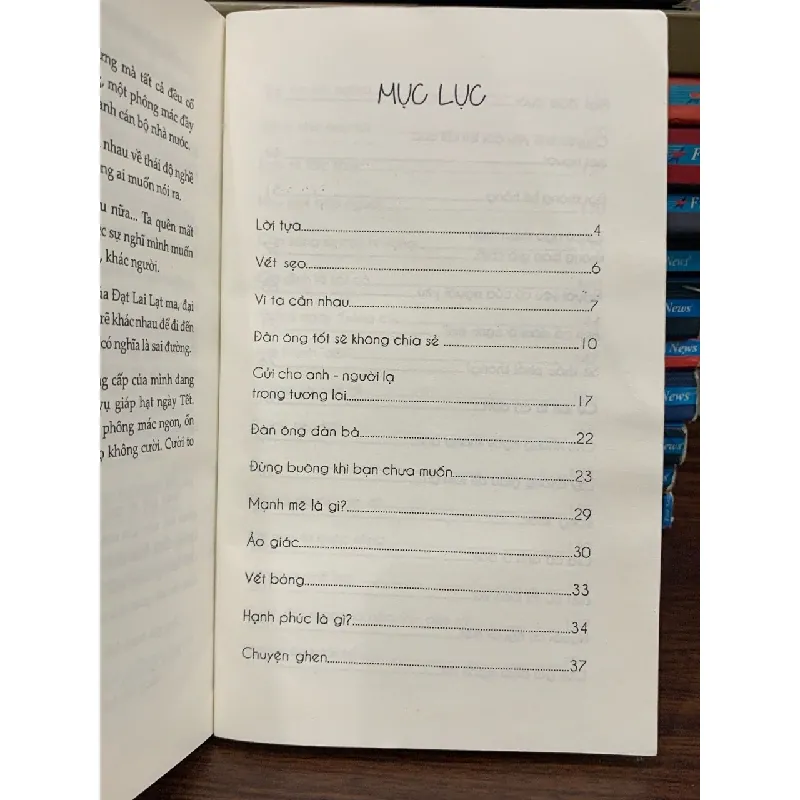 ưng mà tất cả đều cố
một phông mác đầy
anh cán bộ nhà nước.
nhau về thái độ nghề
ng ai muốn nói ra.
u nữa... Ta quên mất
c sự nghĩ mình muốn
, khác người.
ủa Đạt Lai Lạt ma, đại
rẽ khác nhau để đi đến
có nghĩa là sai đường.
ng cấp của mình đang
vụ giáp hạt ngày Tết.
phông mác ngon, ổn
p không cười. Cười to
MỤC LỤC
Lời tựa....4
Vết sẹo....6
Vì ta cần nhau....7
Đàn ông tốt sẽ không chia sẻ....10
Gửi cho anh - người lạ
trong tương lai....17
Đàn ông đàn bà....22
Đừng buông khi bạn chưa muốn....23
Mạnh mẽ là gì?....29
Ảo giác....30
Vết bỏng....33
Hạnh phúc là gì?....34
Chuyện ghen....37
F
F
News
News
News
News
News